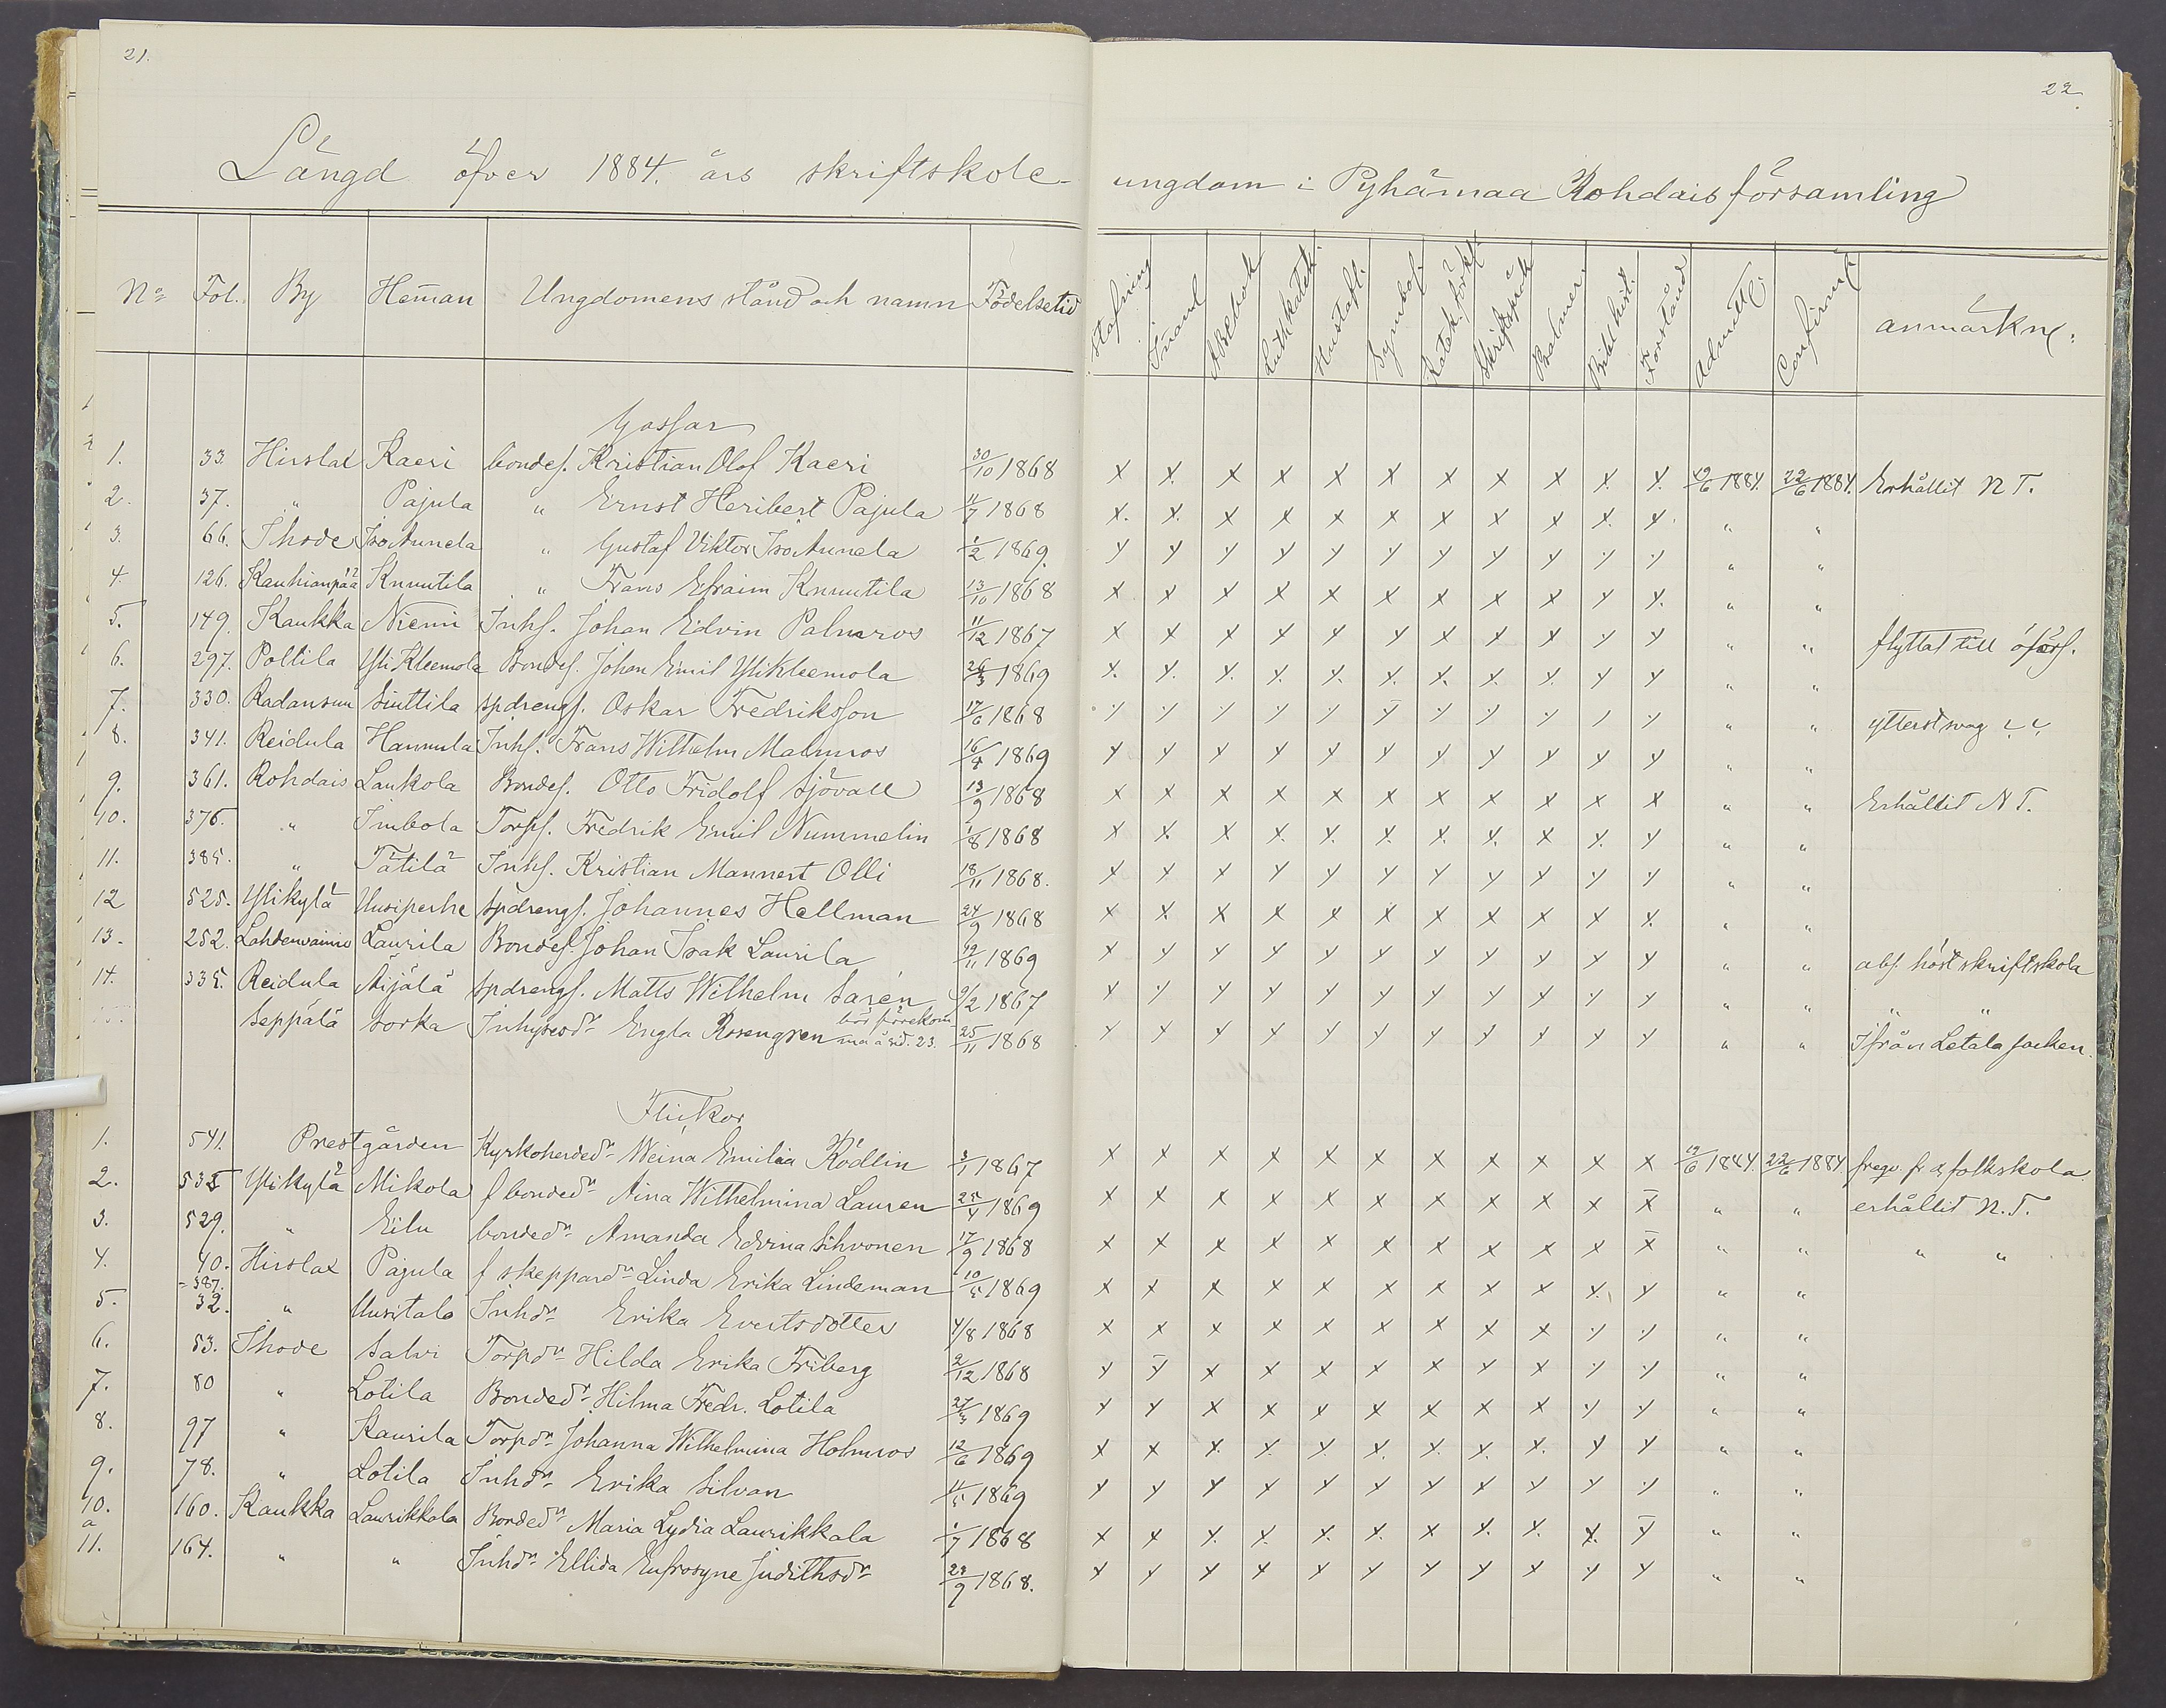 21.
22.
Längd öfver 1884. års skriftskole-
ungdom i Pyhämaa Rohdais församling
No Fol. By Heman Ungdomens stånd och namn Födelsetid
Stafning Innanl ABCbok Luth. katek. Hustafl. Symbol. Katek. förkl. Skriftspråk Psalmer Bibl. hist. Förstånd Admitt. Confirm. anmärkn.
Gossar
1. 33. Hirslax Kaeri bondes. Kristian Olof Kaeri 30/10 1868 x x. x x x x x x x x. x. 19/6 1884. 22/6 1884. Erhållit N T.
2. 37. " Pajula " Ernst Heribert Pajula 11/7 1868 x. x. x x x x x x x x. x. " "
3. 66. Ihode IsoAunela " Gustaf Viktor IsoAunela 1/2 1869. x x x x x x x x x x x " "
4. 126. Kauhianpää Knuutila " Frans Efraim Knuutila 13/10 1868 x x x x x x x x x x x. " "
5. 149. Kaukka Niemi Inhs. Johan Edvin Palmros 11/12 1867 x x x x x x x x x x x " " flyttat till
6. 297. Polttila YliKleemola Bondes. Johan Emil YliKleemola 26/3 1869 x. x. x. x. x. x. x. x. x. x x " "
7. 330. Radansuu Siuttila spdrengs. Oskar Fredriksson 17/6 1868 x x x x x x x x x x x " " ytterst svag
8. 341. Reidula Hannula Inhs. Frans Wilhelm Malmros 16/4 1869 x x x x x x x x x x x " "
9. 361. Rohdais Laukola Bondes. Otto Fridolf Sjövall 13/9 1868 x x x x x x x x x x x " " Erhållit N T.
10. 376. " Imbola Torps. Fredrik Emil Nummelin 1/8 1868 x x. x x. x. x. x. x. x x. x " "
11. 385. " Tätilä Inhs. Kristian Mannert Olli 18/11 1868. x x x x x x x x x x x " "
12 525. Ylikylä Uusiperhe Spdrengs. Johannes Hellman 24/9 1868 x x. x x x x x x x x x. " "
13. 252. Lahdenvainio Laurila Bondes. Johan Isak Laurila 19/11 1869 x x x x x x x x x x x " " abs. höstskriftskola
14. 335. Reidula Äijälä Spdrengs. Matts Wilhelm Sarén 9/2 1867 x x x x x x x x x x x " " " "
Seppälä Sorka Inhysesdr Engla Rosengren bör förekomma å sid. 23. 25/11 1868 x x x x x x x x x x x " " Ifrån Letala socken.
Flickor
1. 541. Prestgården Kyrkoherdedr Weina Emilia Rödlin 3/1 1867 x x x x x x x x x x x 19/6 1884. 22/6 1884 freqv. fr o folkskola.
2. 535 Ylikylä Mikola f bondedr Aina Wilhelmina Lauren 25/4 1869 x x x x x x x x x x x " " erhållit N. T.
3. 529. " Eilu bondedr Amanda Edvina Sihvonen 17/9 1868 x x x x x x x x x x x " " " "
4. 40. =387. Hirslax Pajula f skeppardr Linda Erika Lindeman 10/5 1869 x x x x x x x x x x. x " "
5. 32. " Uusitalo Inhdr Erika Evertsdotter 4/8 1868 x x x x x x x x x x x " "
6. 53. Ihode Salvi Torpdr Hilda Erika Friberg 2/12 1868 x x x x x x x x x x x " "
7. 80 " Lotila Bondedr Hilma Fredr. Lotila 27/3 1869 x x x x x x x x x x x " "
8. 97 " Kaurila Torpdr Johanna Wilhelmina Holmros 12/6 1869 x x x. x. x. x. x. x. x. x x " "
9. 78. " Lotila Inhdr Erika Silvan 11/5 1869 x x x x x x x x x x x " "
10. a 160. Kaukka Laurikkala Bondedr Maria Lydia Laurikkala 1/7 1868 x x x. x. x. x. x x. x. x. x " "
11. 164. " " Inhdr Ellida Eufrosyne Judithsdr 29/9 1868. x x x x x x x x x x x " "